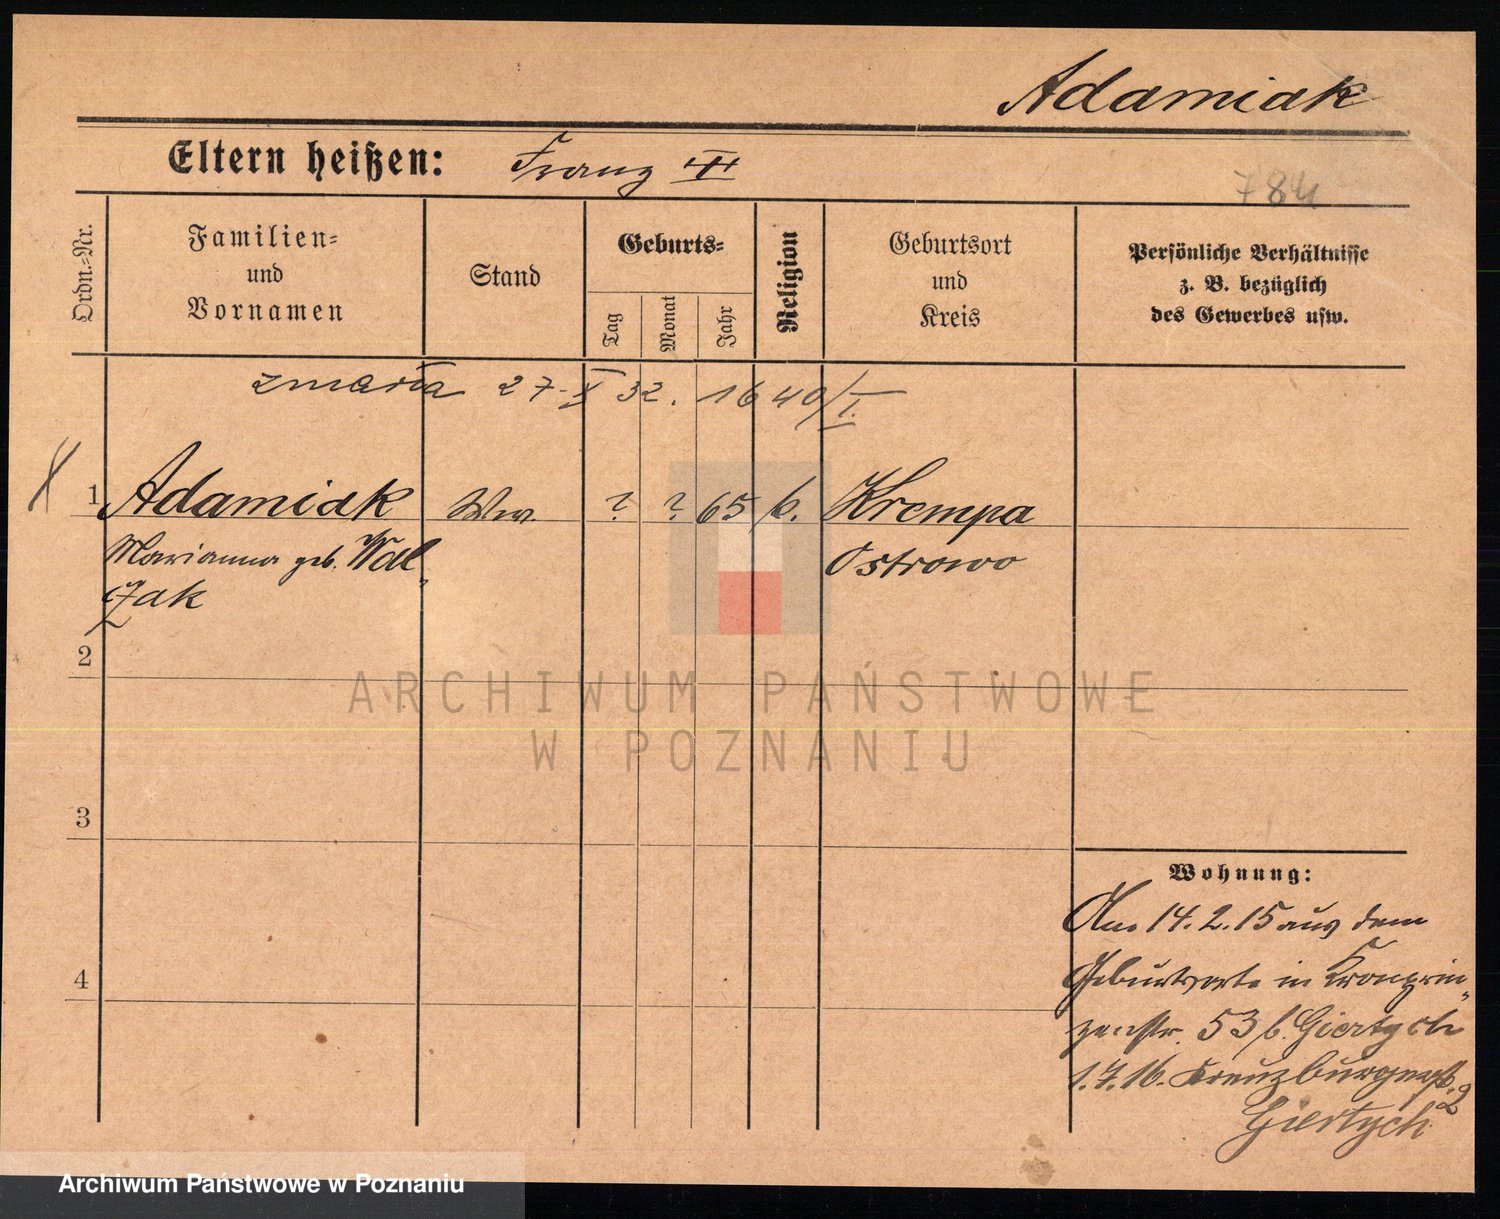 Adamiak
Eltern heißen: Franz III
784
Ordn.-Nr.
Familien-
und
Vornamen
Stand
Geburts-
Tag
Monat
Jahr
Religion
Geburtsort
und
Kreis
Persönliche Verhältnisse
z. B. bezüglich
des Gewerbes usw.
zmarła 27-X 32. 1640/I.
1 Adamiak Ww. ? ? 65 k. Krempa
Marianna geb. Wal-
czak
Ostrowo
2
ARCHIWUM PAŃSTWOWE
W POZNANIU
3
Wohnung:
Am 14.2.15 aus dem
4
Geburtsorte in Kronprin-
zenstr. 53 b. Giertych
1.7.16. Kreuzburgerst. 2
Giertych
Archiwum Państwowe w Poznaniu